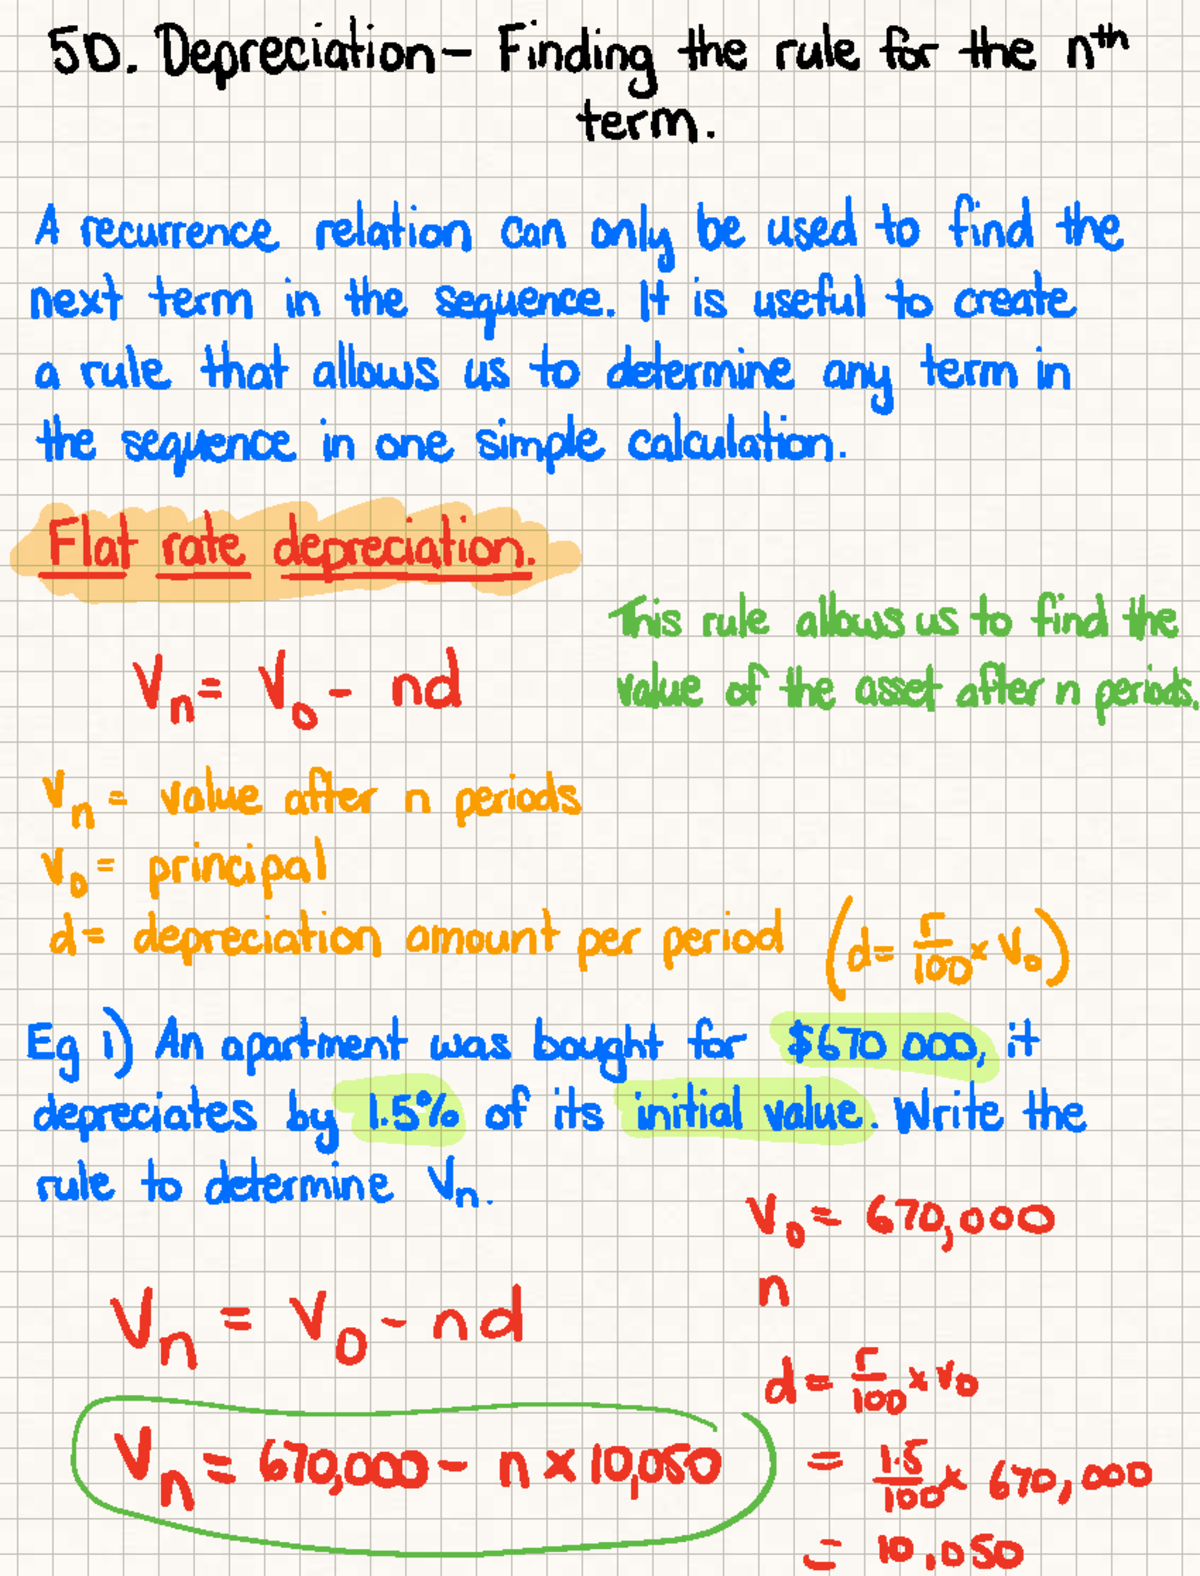 5D. Depreciation - Finding the rule for the nth
term.
A recurrence relation can only be used to find the
next term in the sequence. It is useful to create
a rule that allows us to determine any term in
the sequence in one simple calculation.
Flat rate depreciation.
This rule allows us to find the
value of the asset after n periods.
Vn = V0 - nd
Vn = value after n periods
V0 = principal
d = depreciation amount per period (d = r/100 × V0)
Eg 1) An apartment was bought for $670 000, it
depreciates by 1.5% of its initial value. Write the
rule to determine Vn.
V0 = 670,000
n
Vn = V0 - nd
d = r/100 × V0
Vn = 670,000 - n × 10,050
= 1.5/100 × 670,000
= 10,050